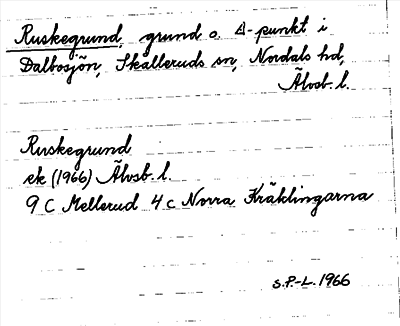 Ruskegrund, grund o. Δ-punkt i
Dalbosjön, Skålleruds sn, Nordals hd,
Älvsb. l.
Ruskegrund
ek (1966) Älvsb. l.
9 C Mellerud 4 c Norra Kräklingarna
S.P.-L. 1966